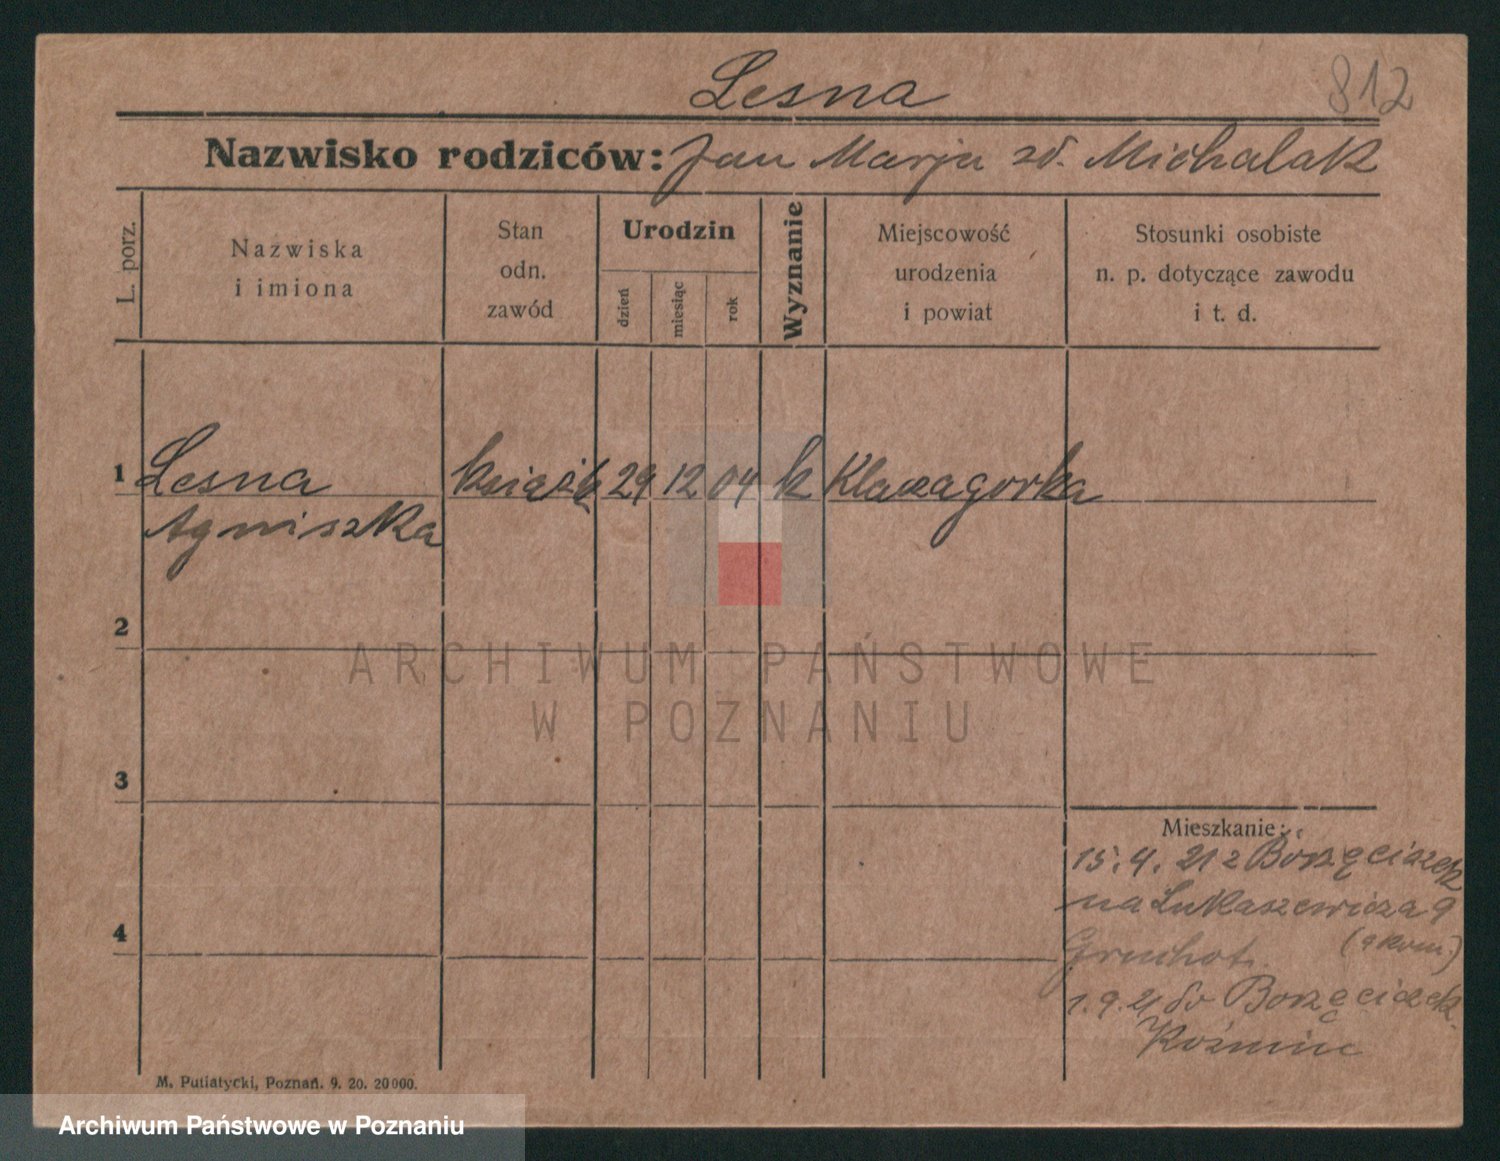 Lesna
812
Nazwisko rodziców: Jan Marja zd. Michalak
L. porz.
Nazwiska
i imiona
Stan
odn.
zawód
Urodzin
dzień
miesiąc
rok
Wyznanie
Miejscowość
urodzenia
i powiat
Stosunki osobiste
n. p. dotyczące zawodu
i t. d.
1 Lesna 29 12 04 k
Agniszka
2
3
4
ARCHIWUM PAŃSTWOWE
W POZNANIU
Mieszkanie:
15.4.21 z Borzęciczek
na Lukaszewicza 9
1.9.21 do Borzęciczek
Koźmin
M. Putiatycki, Poznań. 9. 20. 20000.
Archiwum Państwowe w Poznaniu